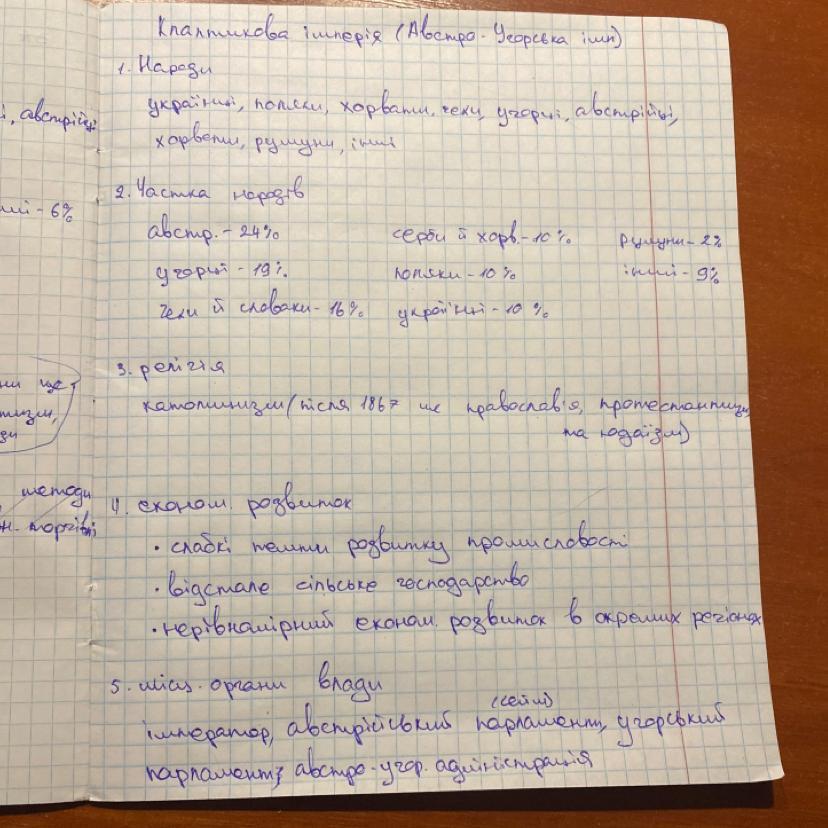 і, австрійці
ші - 6%
ни ще
тизм,
методи
н. торгівлі
Клаптикова імперія (Австро-Угорська імп)
1. Народи
українці, поляки, хорвати, чехи, угорці, австрійці,
хорвати, румуни, інші
2. Частка народів
австр. - 24% серби й хорв. - 10% румуни - 2%
угорці - 19% поляки - 10% інші - 9%
чехи й словаки - 16% українці - 10%
3. релігія
католицизм (після 1867 ще православ'я, протестантизм
та юдаїзм)
4. економ. розвиток
• слабкі темпи розвитку промисловості
• відстале сільське господарство
• нерівномірний економ. розвиток в окремих регіонах
5. місц. органи влади
(сейм)
імператор, австрійський парламент, угорський
парламент, австро-угор. адміністрація